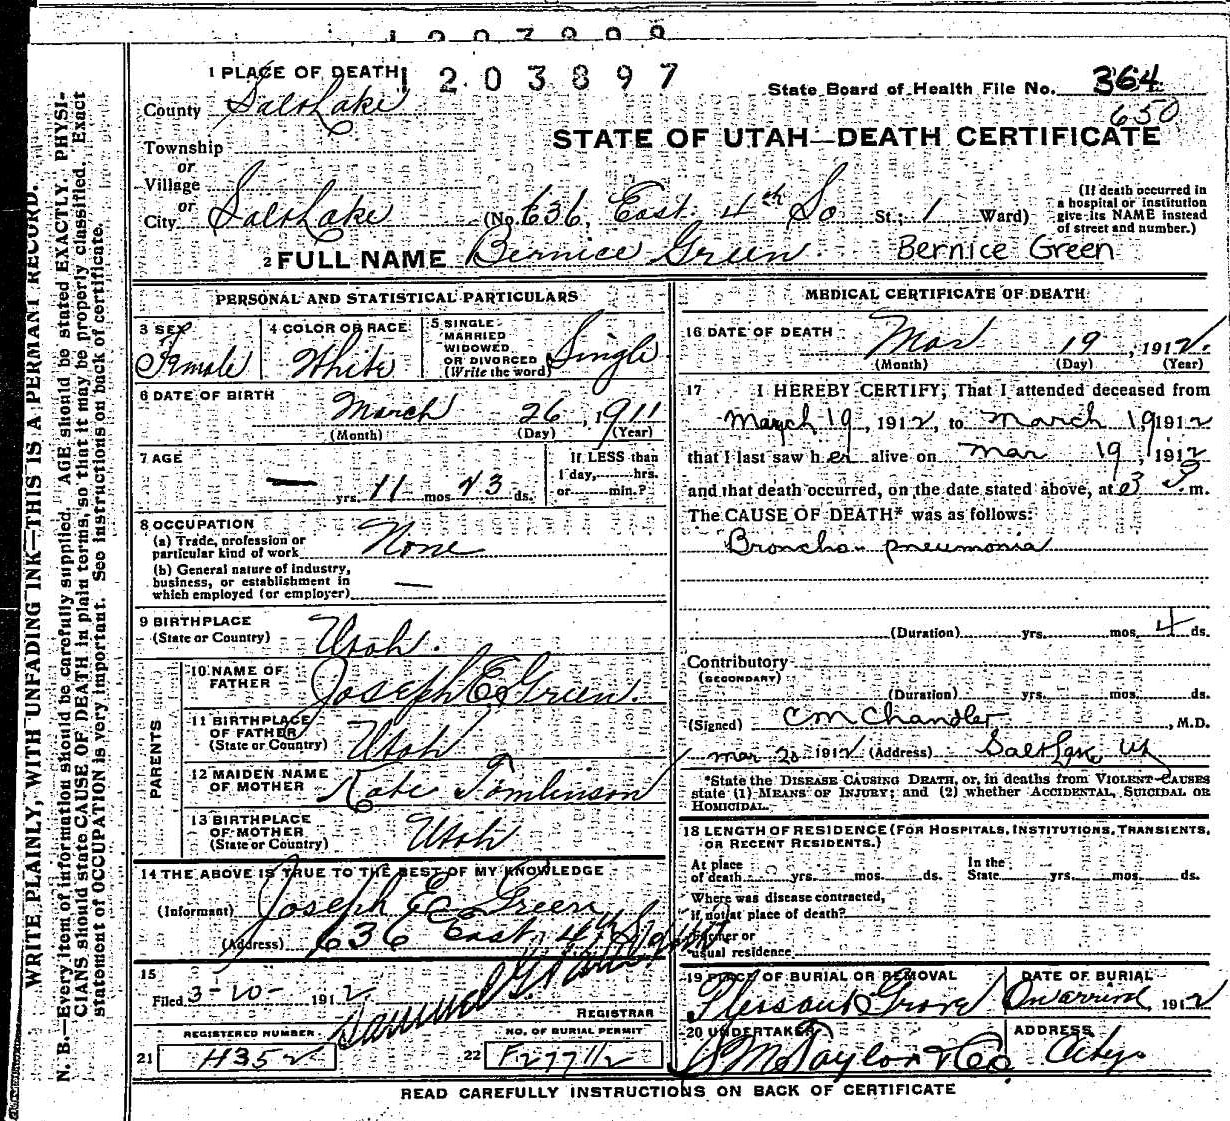 1203897
1 PLACE OF DEATH
State Board of Health File No. 364
County Salt Lake
650
STATE OF UTAH—DEATH CERTIFICATE
Township
or
Village
or
City Salt Lake (No. 636, East 4th So St.; 1 Ward)
(If death occurred in a hospital or institution give its NAME instead of street and number.)
2 FULL NAME Bernice Green Bernice Green
PERSONAL AND STATISTICAL PARTICULARS
3 SEX Female
4 COLOR OR RACE White
5 SINGLE MARRIED WIDOWED OR DIVORCED (Write the word) Single
6 DATE OF BIRTH March 26, 1911
(Month) (Day) (Year)
7 AGE — yrs. 11 mos. 23 ds.
If LESS than 1 day, hrs. or min.?
8 OCCUPATION
(a) Trade, profession or particular kind of work None
(b) General nature of industry, business, or establishment in which employed (or employer) —
9 BIRTHPLACE
(State or Country) Utah.
PARENTS
10 NAME OF FATHER Joseph E Green.
11 BIRTHPLACE OF FATHER (State or Country) Utah
12 MAIDEN NAME OF MOTHER Kate Tomlinson
13 BIRTHPLACE OF MOTHER (State or Country) Utah
14 THE ABOVE IS TRUE TO THE BEST OF MY KNOWLEDGE
(Informant) Joseph E Green
(Address) 636 East 4th
15
Filed 3-20- 1912
REGISTRAR
REGISTERED NUMBER.
21 H352
NO. OF BURIAL PERMIT
22 F27712
MEDICAL CERTIFICATE OF DEATH
16 DATE OF DEATH Mar 19, 1912.
(Month) (Day) (Year)
17 I HEREBY CERTIFY, That I attended deceased from
March 19, 1912, to March 19 1912
that I last saw her alive on Mar 19, 1912
and that death occurred, on the date stated above, at 3 P.m.
The CAUSE OF DEATH* was as follows:
Broncho pneumonia
(Duration) yrs. mos. 4 ds.
Contributory
(SECONDARY)
(Duration) yrs. mos. ds.
(Signed) C M Chandler, M.D.
Mar 20 1912 (Address) Salt Lake Ut
*State the DISEASE CAUSING DEATH, or, in deaths from VIOLENT CAUSES
state (1) MEANS OF INJURY; and (2) whether ACCIDENTAL, SUICIDAL OR
HOMICIDAL.
18 LENGTH OF RESIDENCE (FOR HOSPITALS, INSTITUTIONS, TRANSIENTS,
OR RECENT RESIDENTS.)
At place of death yrs. mos. ds. In the State yrs. mos. ds.
Where was disease contracted,
if not at place of death?
Former or
usual residence
19 PLACE OF BURIAL OR REMOVAL Plesant Grove
DATE OF BURIAL On arrival 1912
20 UNDERTAKER S M Taylor & Co
ADDRESS City
READ CAREFULLY INSTRUCTIONS ON BACK OF CERTIFICATE
WRITE PLAINLY, WITH UNFADING INK—THIS IS A PERMANENT RECORD.
N. B.—Every item of information should be carefully supplied. AGE should be stated EXACTLY. PHYSI-
CIANS should state CAUSE OF DEATH in plain terms, so that it may be properly classified. Exact
statement of OCCUPATION is very important. See instructions on back of certificate.